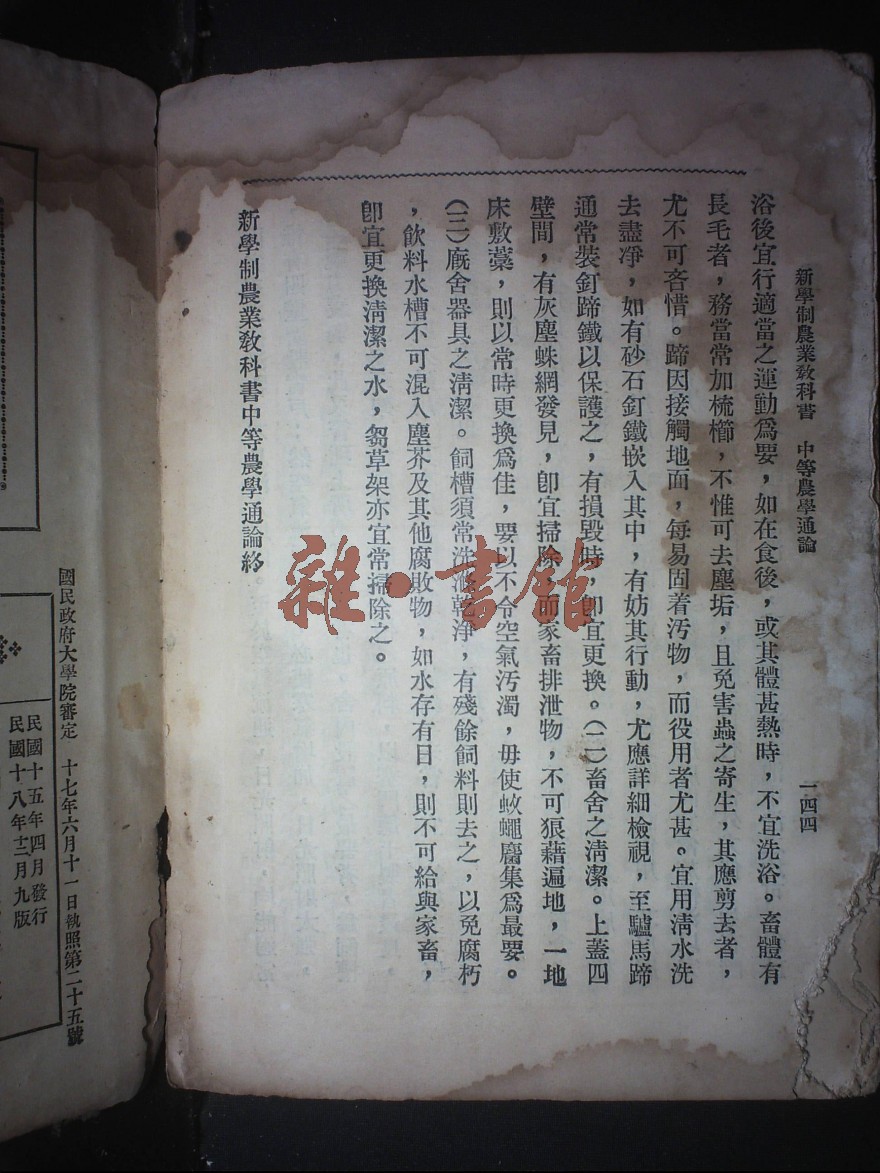 新學制農業敎科書　中等農學通論
一四四
浴後宜行適當之運動爲要，如在食後，或其體甚熱時，不宜洗浴。畜體有
長毛者，務當常加梳櫛，不惟可去塵垢，且免害蟲之寄生，其應剪去者，
尤不可吝惜。蹄因接觸地面，每易固着汚物，而役用者尤甚。宜用淸水洗
去盡淨，如有砂石釘鐵嵌入其中，有妨其行動，尤應詳細檢視，至驢馬蹄
通常裝釘蹄鐵以保護之，有損毀時，卽宜更換。（二）畜舍之淸潔。上蓋四
壁間，有灰塵蛛網發見，卽宜掃除，而家畜排泄物，不可狼藉遍地，一地
床敷藁，則以常時更換爲佳，要以不令空氣汚濁，毋使蚊蠅麕集爲最要。
（三）廐舍器具之淸潔。飼槽須常洗滌乾淨，有殘餘飼料則去之，以免腐朽
，飮料水槽不可混入塵芥及其他腐敗物，如水存有日，則不可給與家畜，
卽宜更換淸潔之水，芻草架亦宜常掃除之。
新學制農業敎科書中等農學通論終
雜·書館
國民政府大學院審定　十七年六月十一日執照第二十五號
民國十五年四月發行
民國十八年十二月九版